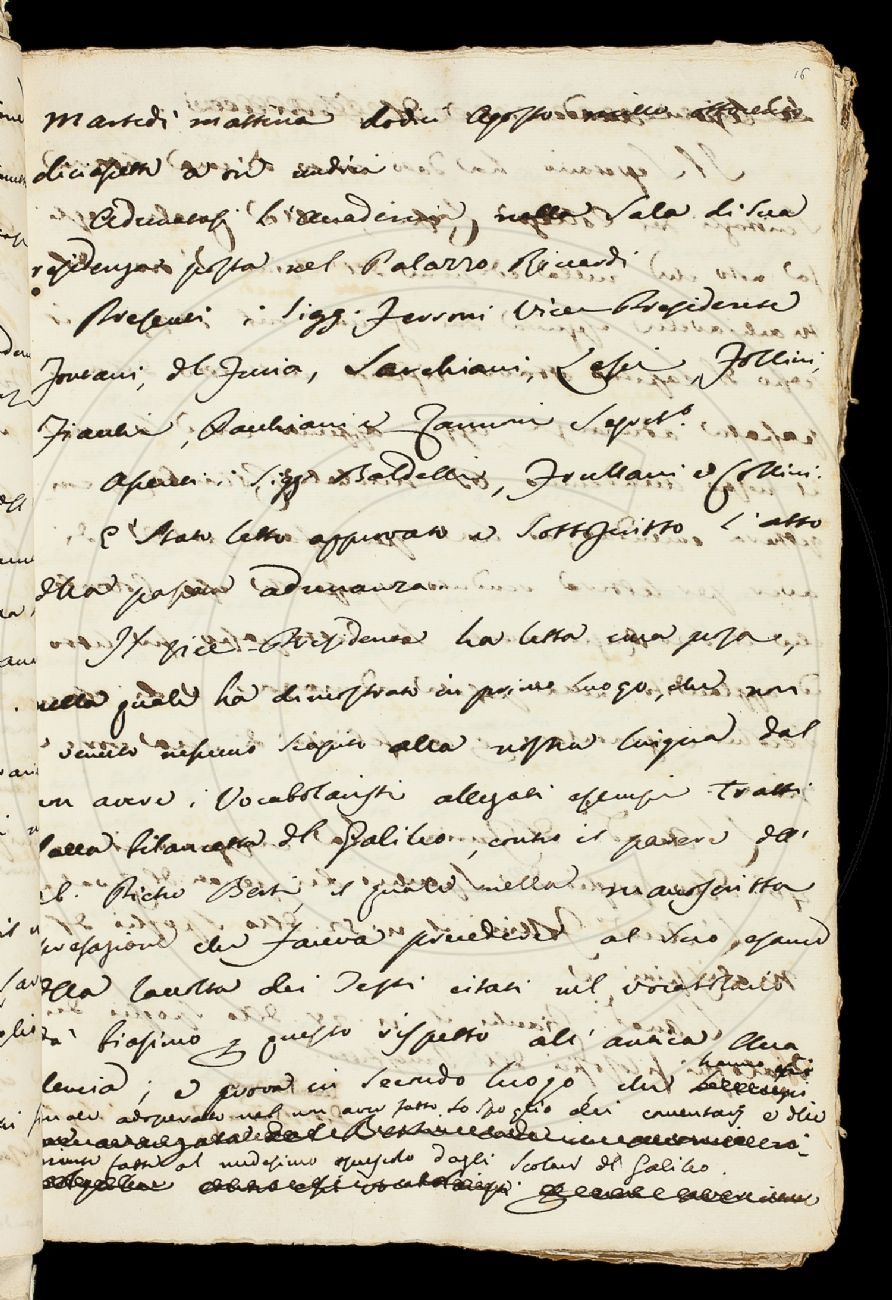 16
Martedì mattina dodici Agosto mille ottocento
diciasette a ore undici
Adunatasi l'Accademia, nella Sala di sua
residenza posta nel Palazzo Riccardi
Presenti i Sigg. Ferroni Vice-Presidente
Fontani, del Furia, Sarchiani, Lessi, Follini,
Fiacchi, Pacchiani e Zannoni Segret.º
Assenti i Sigg. Baldelli, Frullani e Collini.
È stato letto approvato e sottoscritto l'atto
della passata adunanza
Il vice-Presidente ha letta una
nella quale ha dimostrato in primo luogo, che non
è venuto nessuno scapito alla nostra lingua dal
non avere i Vocabolaristi allegati esempi tratti
dalla bilancetta del Galileo, contro il parere dell'
Ab. Pietro Berti, il quale nella manoscritta
prefazione che faceva precedere al suo esame
della raccolta dei Testi citati nel vocabolario
dà biasimo per questo rispetto all'antica Acca
demia; e prova in secondo luogo, che hanno
adoperato nel non aver fatto lo spoglio dei comentarj e delle
fatte al medesimo opuscolo dagli Scolari del Galileo.